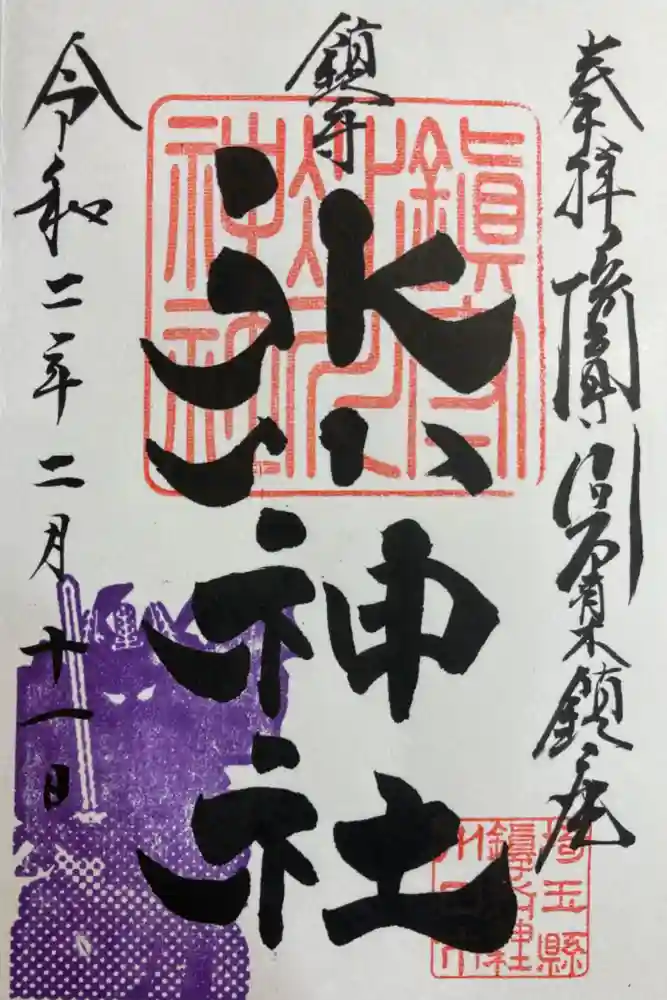 奉拝
青木鎮座
鎮守
氷川神社
令和二年二月十一日
鎮守
氷川
神社
埼玉縣
鎮守氷川神社
川口市